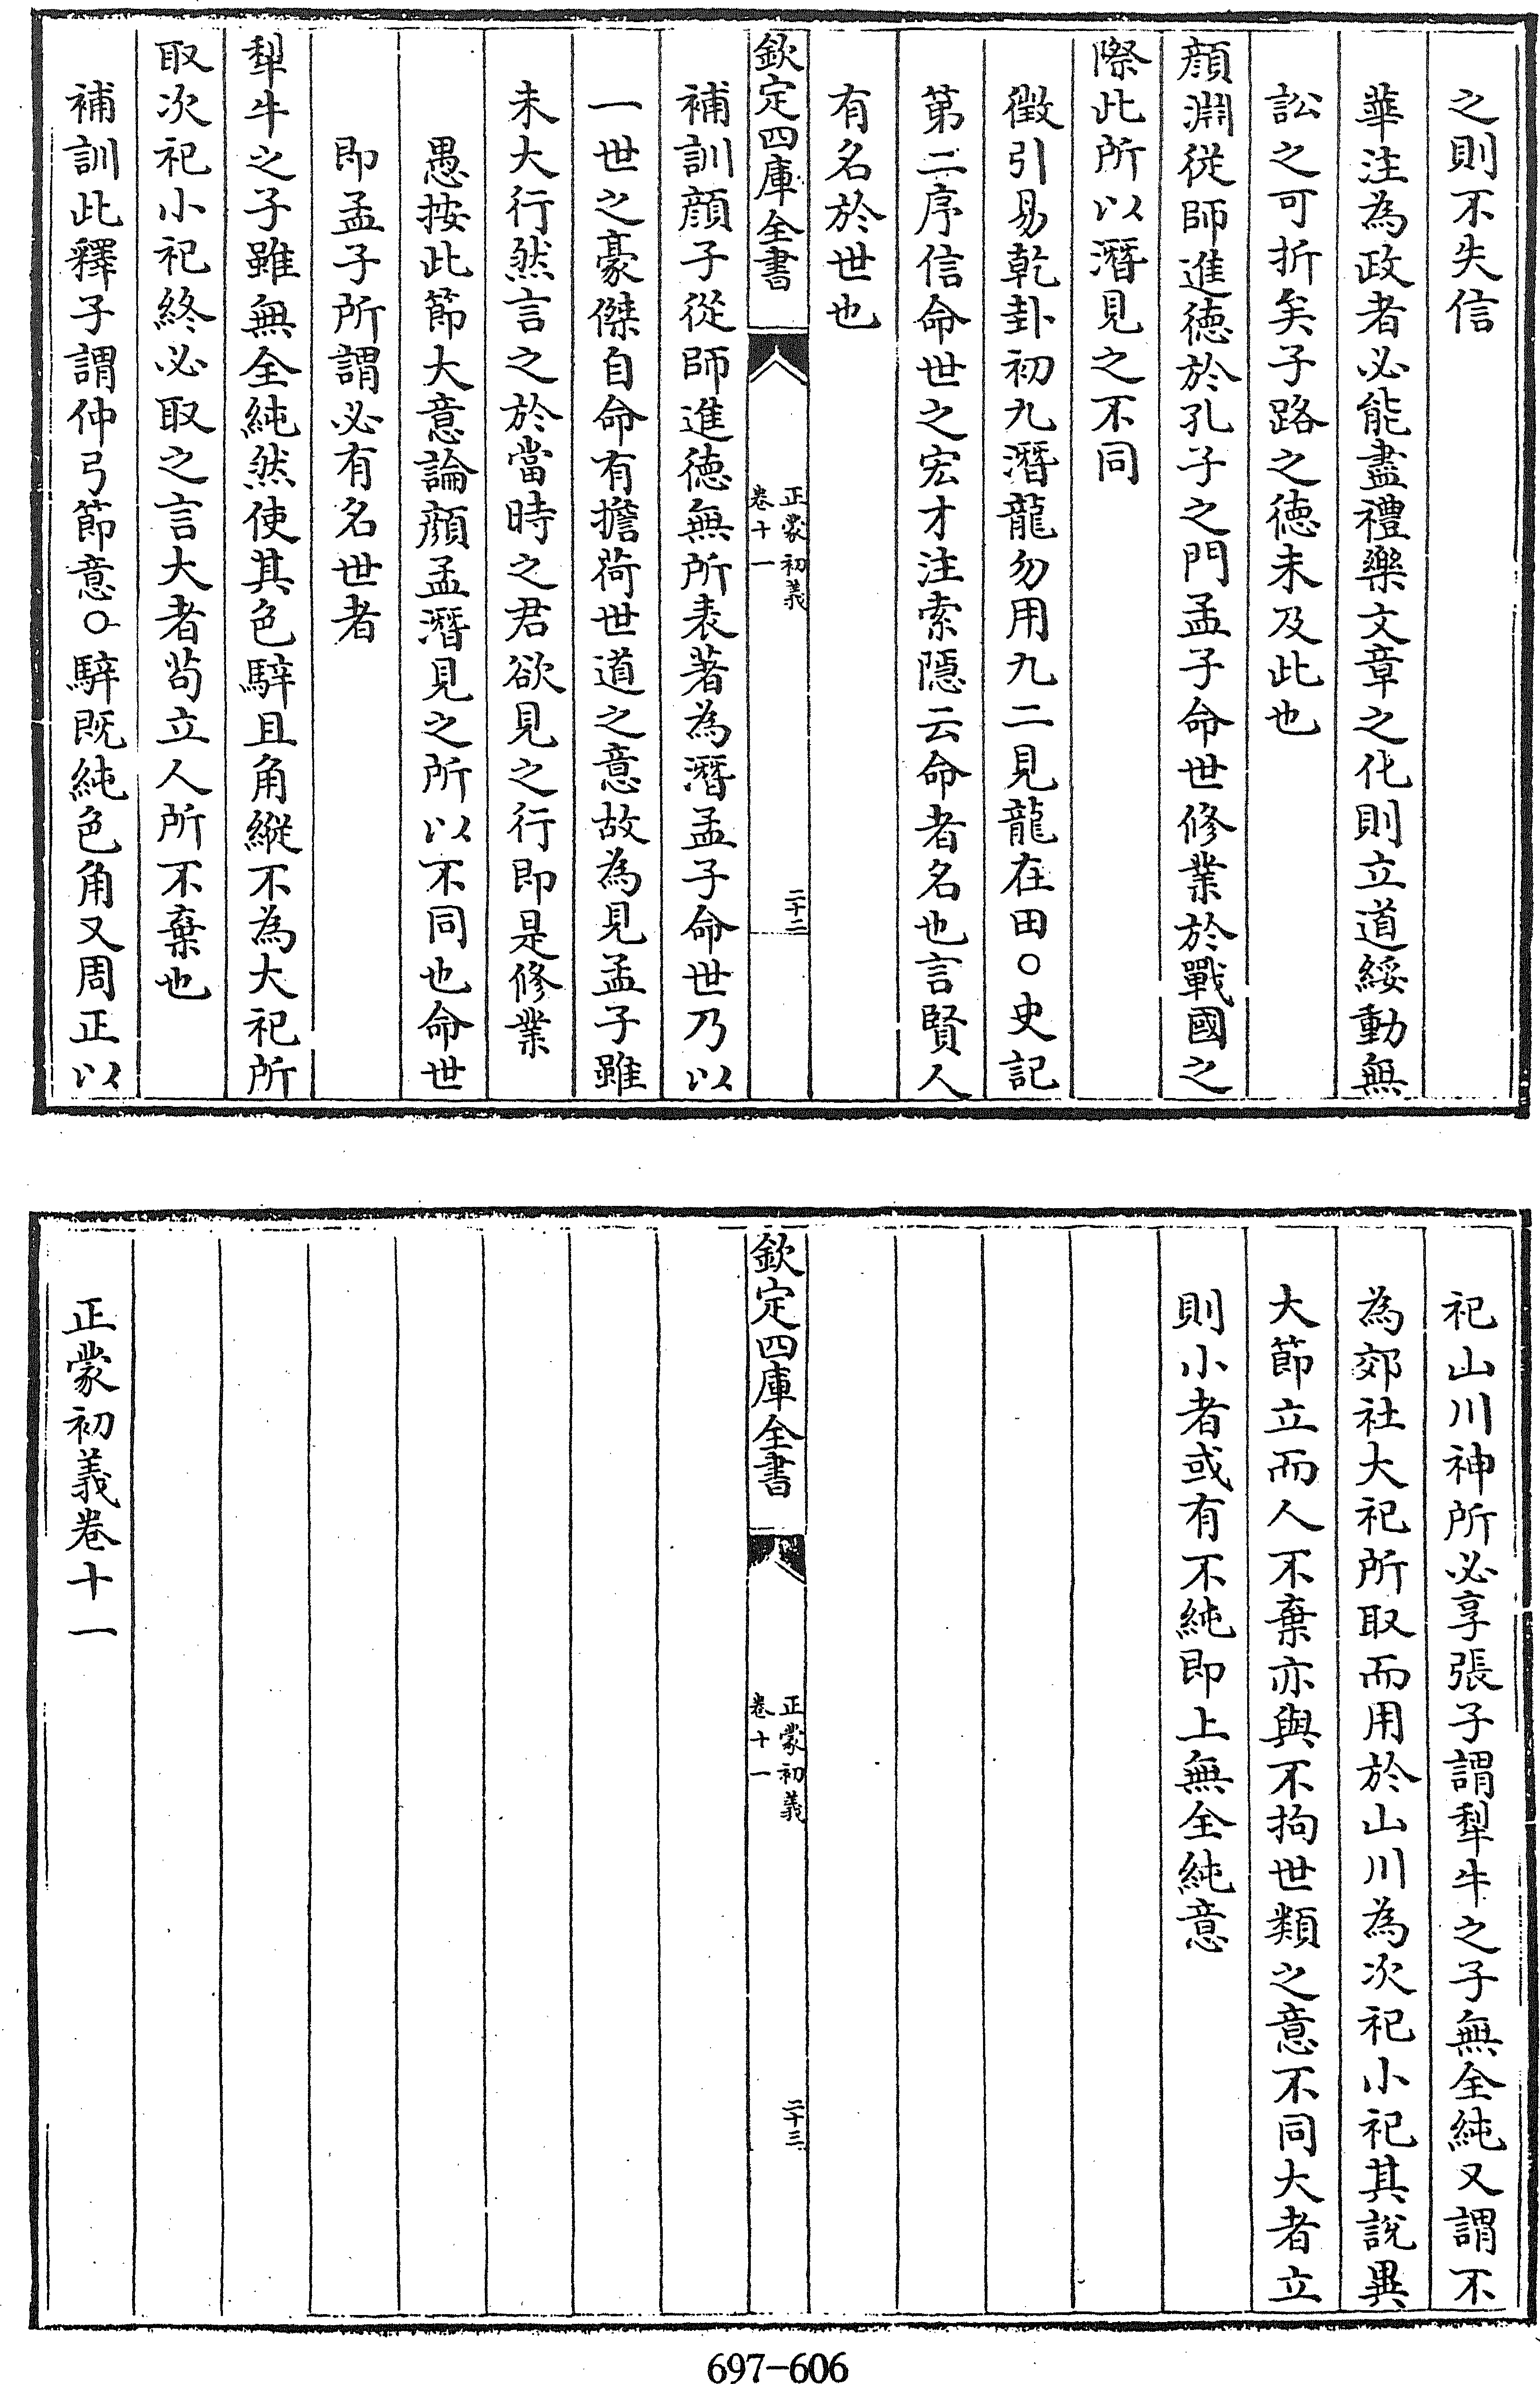 之則不失信
華注為政者必能盡禮樂文章之化則立道綏動無
訟之可折矣子路之徳未及此也
顔淵從師進徳於孔子之門孟子命世修業於戰國之
際此所以潛見之不同
徵引易乾卦初九潛龍勿用九二見龍在田○史記
第二序信命世之宏才注索隱云命者名也言賢人
有名於世也
欽定四庫全書
正蒙初義
卷十一
二十二
補訓顔子從師進徳無所表著為潛孟子命世乃以
一世之豪傑自命有擔荷世道之意故為見孟子雖
未大行然言之於當時之君欲見之行即是修業
愚按此節大意論顔孟潛見之所以不同也命世
即孟子所謂必有名世者
犁牛之子雖無全純然使其色騂且角縱不為大祀所
取次祀小祀終必取之言大者苟立人所不棄也
補訓此釋子謂仲弓節意○騂既純色角又周正以
祀山川神所必享張子謂犁牛之子無全純又謂不
為郊社大祀所取而用於山川為次祀小祀其說異
大節立而人不棄亦與不拘世類之意不同大者立
則小者或有不純即上無全純意
欽定四庫全書
正蒙初義
卷十一
二十三
正蒙初義卷十一
697-606